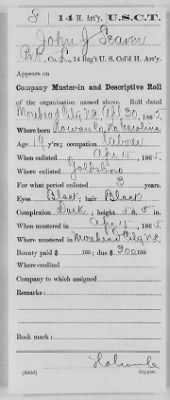 S | 14 H. Art'y. | U.S.C.T.
John J
Pvt., Co. 14 Reg't U. S. Col'd H. Art'y.
Appears on
Company Muster-in and Descriptive Roll
of the organization named above. Roll dated
Morehead City N.C. Apl 30, 1865.
Where born N. Carolina
Age y'rs; occupation Laborer
When enlisted Apr 15, 1865.
Where enlisted Goldsboro
For what period enlisted 3 years.
Eyes Black; hair Black
Complexion Dark; height 5 ft. 5 in.
When mustered in Apr 15, 1865
Where mustered in Morehead City N.C.
Bounty paid $ 100; due $ 300 100
Where credited
Company to which assigned
Remarks:
Book mark:
Holcombe
Copyist.